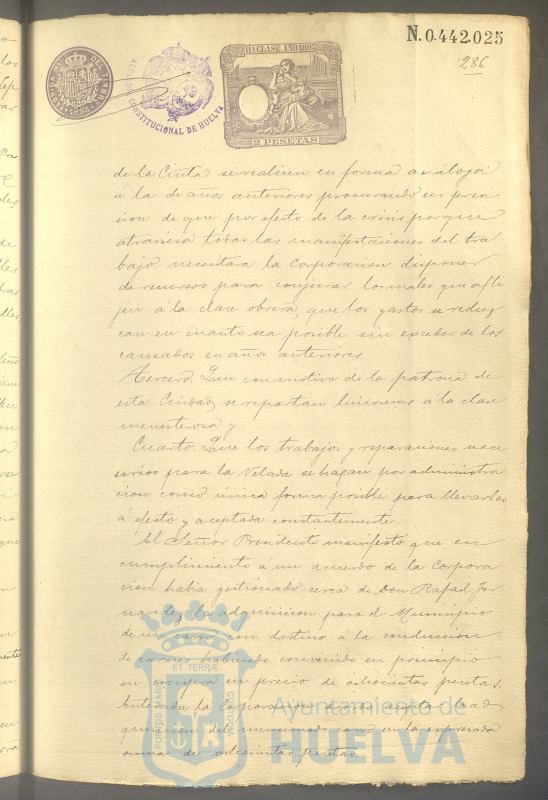 N.0.442.025
286
11ª CLASE AÑO 1895
ALCALDIA CONSTITUCIONAL DE HUELVA
2 PESETAS
de la Cinta se realicen en forma análoga
á la de años anteriores procurando en previ
sion de que por efecto de la crisis porque
atraviesa todas las manifestaciones del tra
bajo necesitara la Corporacion disponer
de recursos para conjurar los males que afli
jen á la clase obrera, que los gastos se reduz
can en cuanto sea posible sin exceder de los
causados en años anteriores
Tercero. Que con motivo de la patrona de
esta Ciudad se repartan limosnas á la clase
menesterosa y
Cuarto Que los trabajos y reparaciones nece
sarios para la Velada se hagan por administra
cion como única forma posible para llevarlos
á efecto y aceptada constantemente.
El Señor Presidente manifestó que en
cumplimiento á un acuerdo de la Corpora
cion habia gestionado cerca de Don Rafael Fer
nandez la adquisicion para el Municipio
de un carro con destino á la conduccion
de carnes habiendo convenido en principio
su compra en precio de ochocientas pesetas.
Enterada la Corporacion acepta la ad
quisicion del mencionado carro en la expresada
suma de ochocientas pesetas.
PORTUS MARIS
ET TERRÆ
CUSTODIA
Ayuntamiento de
HUELVA